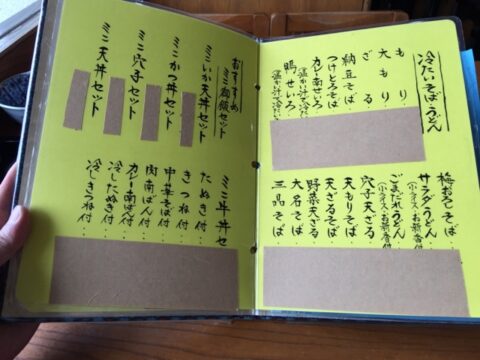 冷たいそば・うどん
もり
大もり
ざる
納豆そば
つけとろそば
カレー南せいろ
(温かい汁で冷たい
鴨せいろ
(温かい汁で冷たい
梅おろしそば
サラダうどん
(小ライス・お新香付
ごまだれうどん
(小ライス・お新香付
穴子天ざる
天もりそば
天ざるそば
野菜天ざる
大名そば
三品そば
おすすめ
ミニ御飯セット
ミニいか天丼セット
ミニかつ丼セット
ミニ穴子セット
ミニ天丼セット
ミニ牛丼セ
たぬき付
きつね付
中華そば付
肉南ばん付
カレー南ばん付
冷したぬき付
冷しきつね付